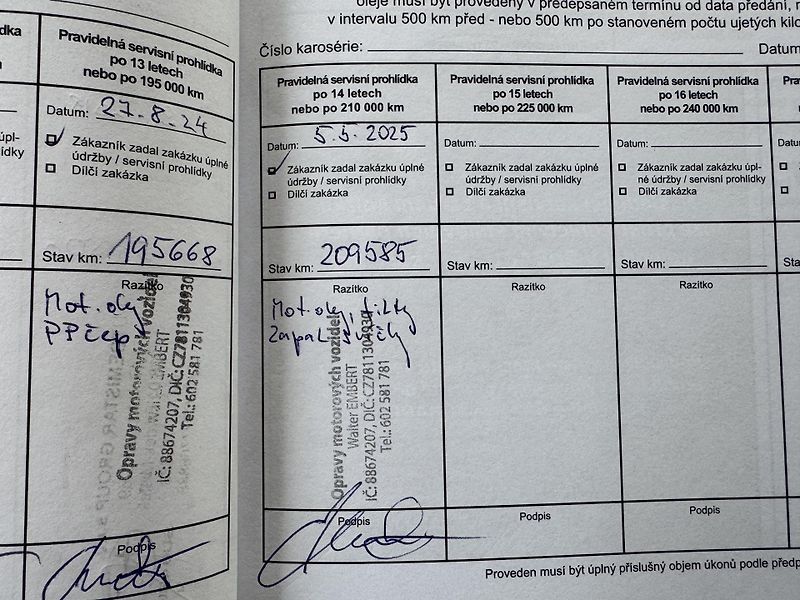 oleje musí být provedeny v předepsaném termínu od data předání,
v intervalu 500 km před - nebo 500 km po stanoveném počtu ujetých
Číslo karosérie:
Datum
Pravidelná servisní prohlídka
po 13 letech
nebo po 195 000 km
Datum: 27.8.24
Zákazník zadal zakázku úplné
údržby / servisní prohlídky
Dílčí zakázka
Stav km: 195668
Razítko
Mot. olej
PP čep
Opravy motorových vozidel
Walter EMBERT
IČ: 88674207, DIČ: CZ7811304930
Tel.: 602 581 781
Podpis
Pravidelná servisní prohlídka
po 14 letech
nebo po 210 000 km
Datum: 5.5.2025
Zákazník zadal zakázku úplné
údržby / servisní prohlídky
Dílčí zakázka
Stav km: 209585
Razítko
Mot. olej, filtry
Zapal. svíčky
Opravy motorových vozidel
Walter EMBERT
IČ: 88674207, DIČ: CZ7811304930
Tel.: 602 581 781
Podpis
Pravidelná servisní prohlídka
po 15 letech
nebo po 225 000 km
Datum:
Zákazník zadal zakázku úplné
údržby / servisní prohlídky
Dílčí zakázka
Stav km:
Razítko
Podpis
Pravidelná servisní prohlídka
po 16 letech
nebo po 240 000 km
Datum:
Zákazník zadal zakázku úpl-
né údržby / servisní prohlídky
Dílčí zakázka
Stav km:
Razítko
Podpis
Proveden musí být úplný příslušný objem úkonů podle